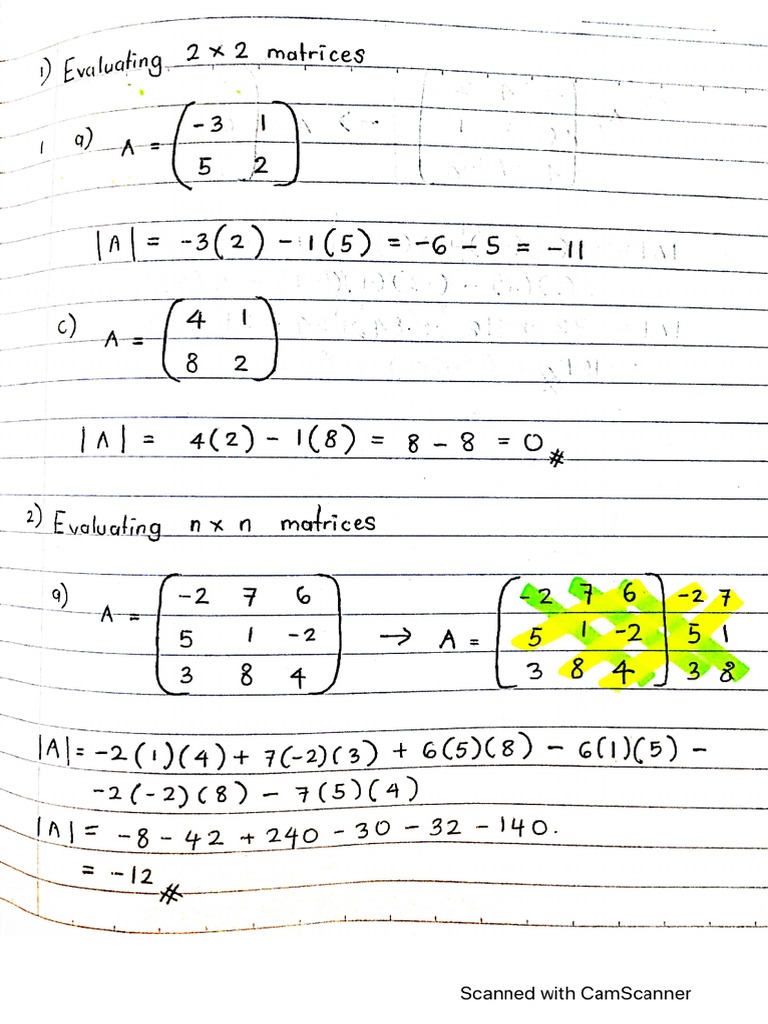 1) Evaluating 2 × 2 matrices
1 a) A = (-3 1
5 2)
|A| = -3(2) - 1(5) = -6 - 5 = -11
c) A = (4 1
8 2)
|A| = 4(2) - 1(8) = 8 - 8 = 0 #
2) Evaluating n × n matrices
a) A = (-2 7 6
5 1 -2
3 8 4) → A = (-2 7 6) -2 7
5 1 -2 5 1
3 8 4 3 8
|A| = -2(1)(4) + 7(-2)(3) + 6(5)(8) - 6(1)(5) -
-2(-2)(8) - 7(5)(4)
|A| = -8 - 42 + 240 - 30 - 32 - 140.
= -12 #
Scanned with CamScanner